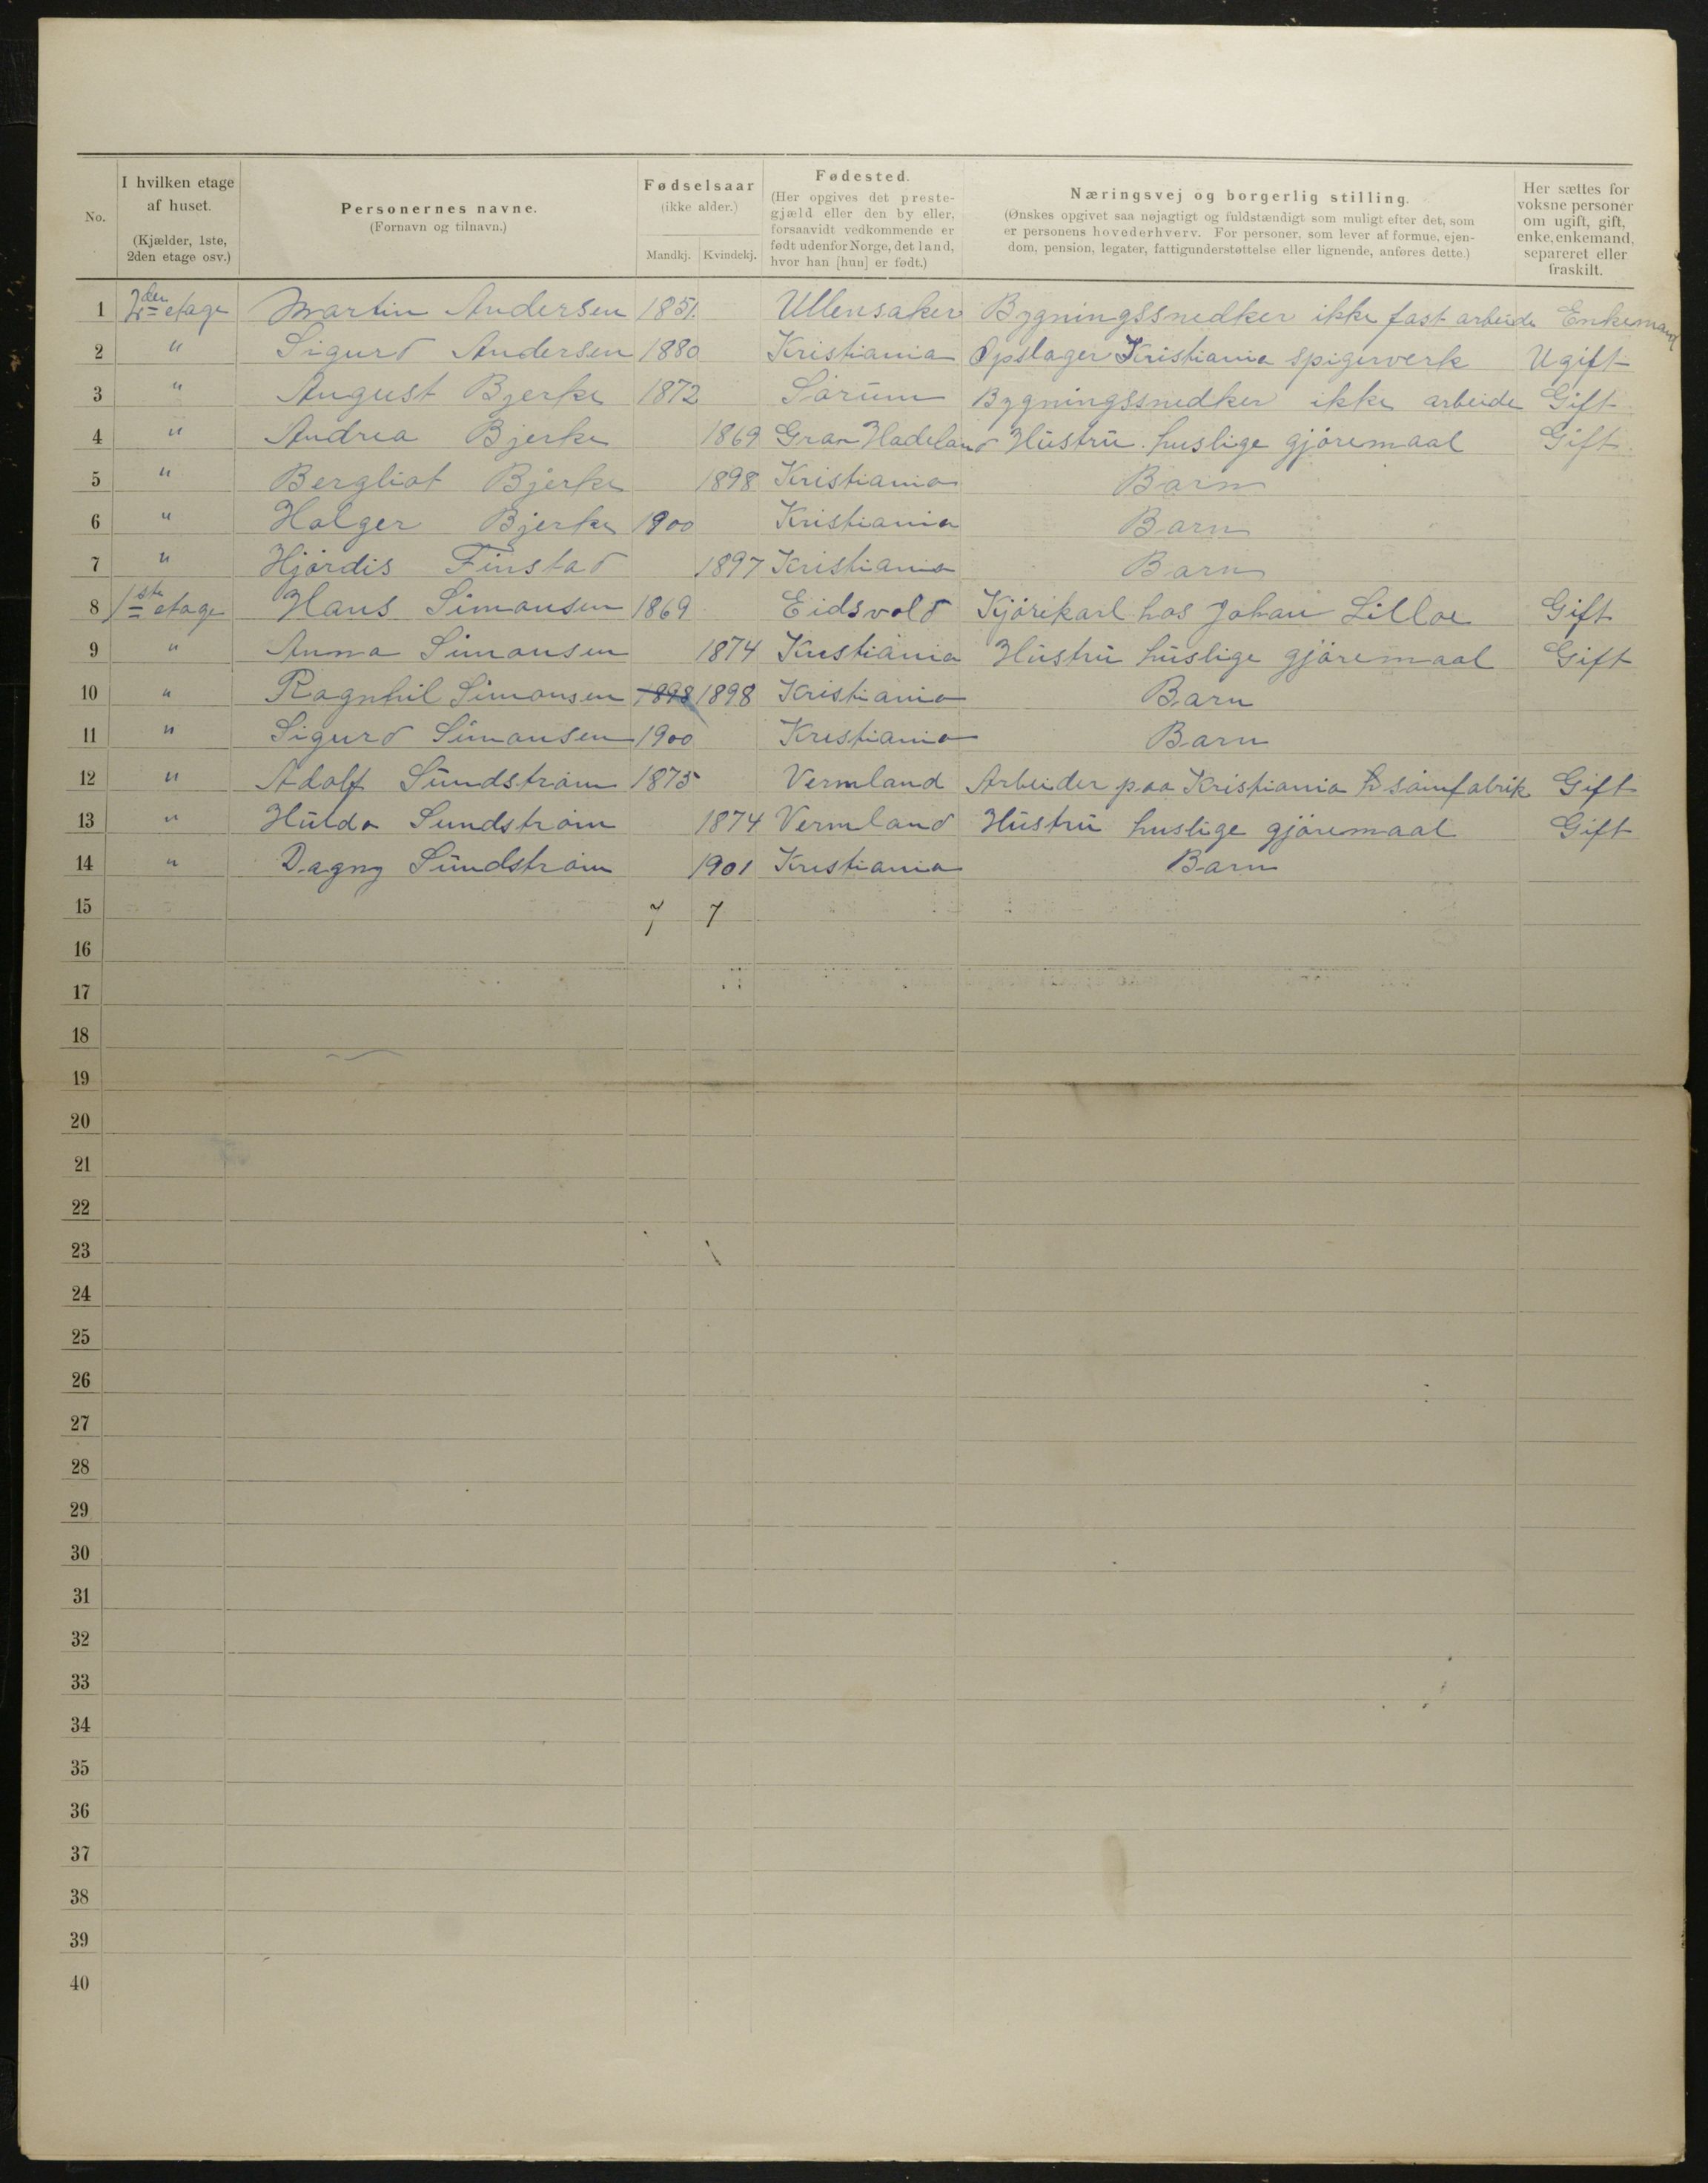 No. | I hvilken etage af huset. (Kjælder, 1ste, 2den etage osv.) | Personernes navne. (Fornavn og tilnavn.) | Fødselsaar (ikke alder.) Mandkj. | Kvindekj. | Fødested. (Her opgives det prestegjæld eller den by eller, forsaavidt vedkommende er født udenfor Norge, det land, hvor han [hun] er født.) | Næringsvej og borgerlig stilling. (Ønskes opgivet saa nøjagtigt og fuldstændigt som muligt efter det, som er personens hovederhverv. For personer, som lever af formue, ejendom, pension, legater, fattigunderstøttelse eller lignende, anføres dette.) | Her sættes for voksne personer om ugift, gift, enke, enkemand, separeret eller fraskilt.
1 2den etage Martin Andersen 1851. Ullensaker Bygningssnedker ikke fast arbeide Enkemand
2 " Sigurd Andersen 1880 Kristiania Opslager Kristiania spigerverk Ugift
3 " August Bjerke 1872 Sørum Bygningssnedker ikke arbeide Gift
4 " Andrea Bjerke 1869 Gran Hadeland Hustru huslige gjøremaal Gift
5 " Bergliot Bjerke 1898 Kristiania Barn
6 " Holger Bjerke 1900 Kristiania Barn
7 " Hjørdis Finstad 1897 Kristiania Barn
8 1ste etage Hans Simonsen 1869 Eidsvold Kjørekarl hos Johan Lilloe Gift
9 " Anna Simonsen 1874 Kristiania Hustru huslige gjøremaal Gift
10 " Ragnhil Simonsen 1898 1898 Kristiania Barn
11 " Sigurd Simonsen 1900 Kristiania Barn
12 " Adolf Sundstrøm 1875 Vermland Arbeider paa Kristiania sømfabrik Gift
13 " Hulda Sundstrøm 1874 Vermland Hustru huslige gjøremaal Gift
14 " Dagny Sundstrøm 1901 Kristiania Barn
15 7 7
16
17
18
19
20
21
22
23
24
25
26
27
28
29
30
31
32
33
34
35
36
37
38
39
40